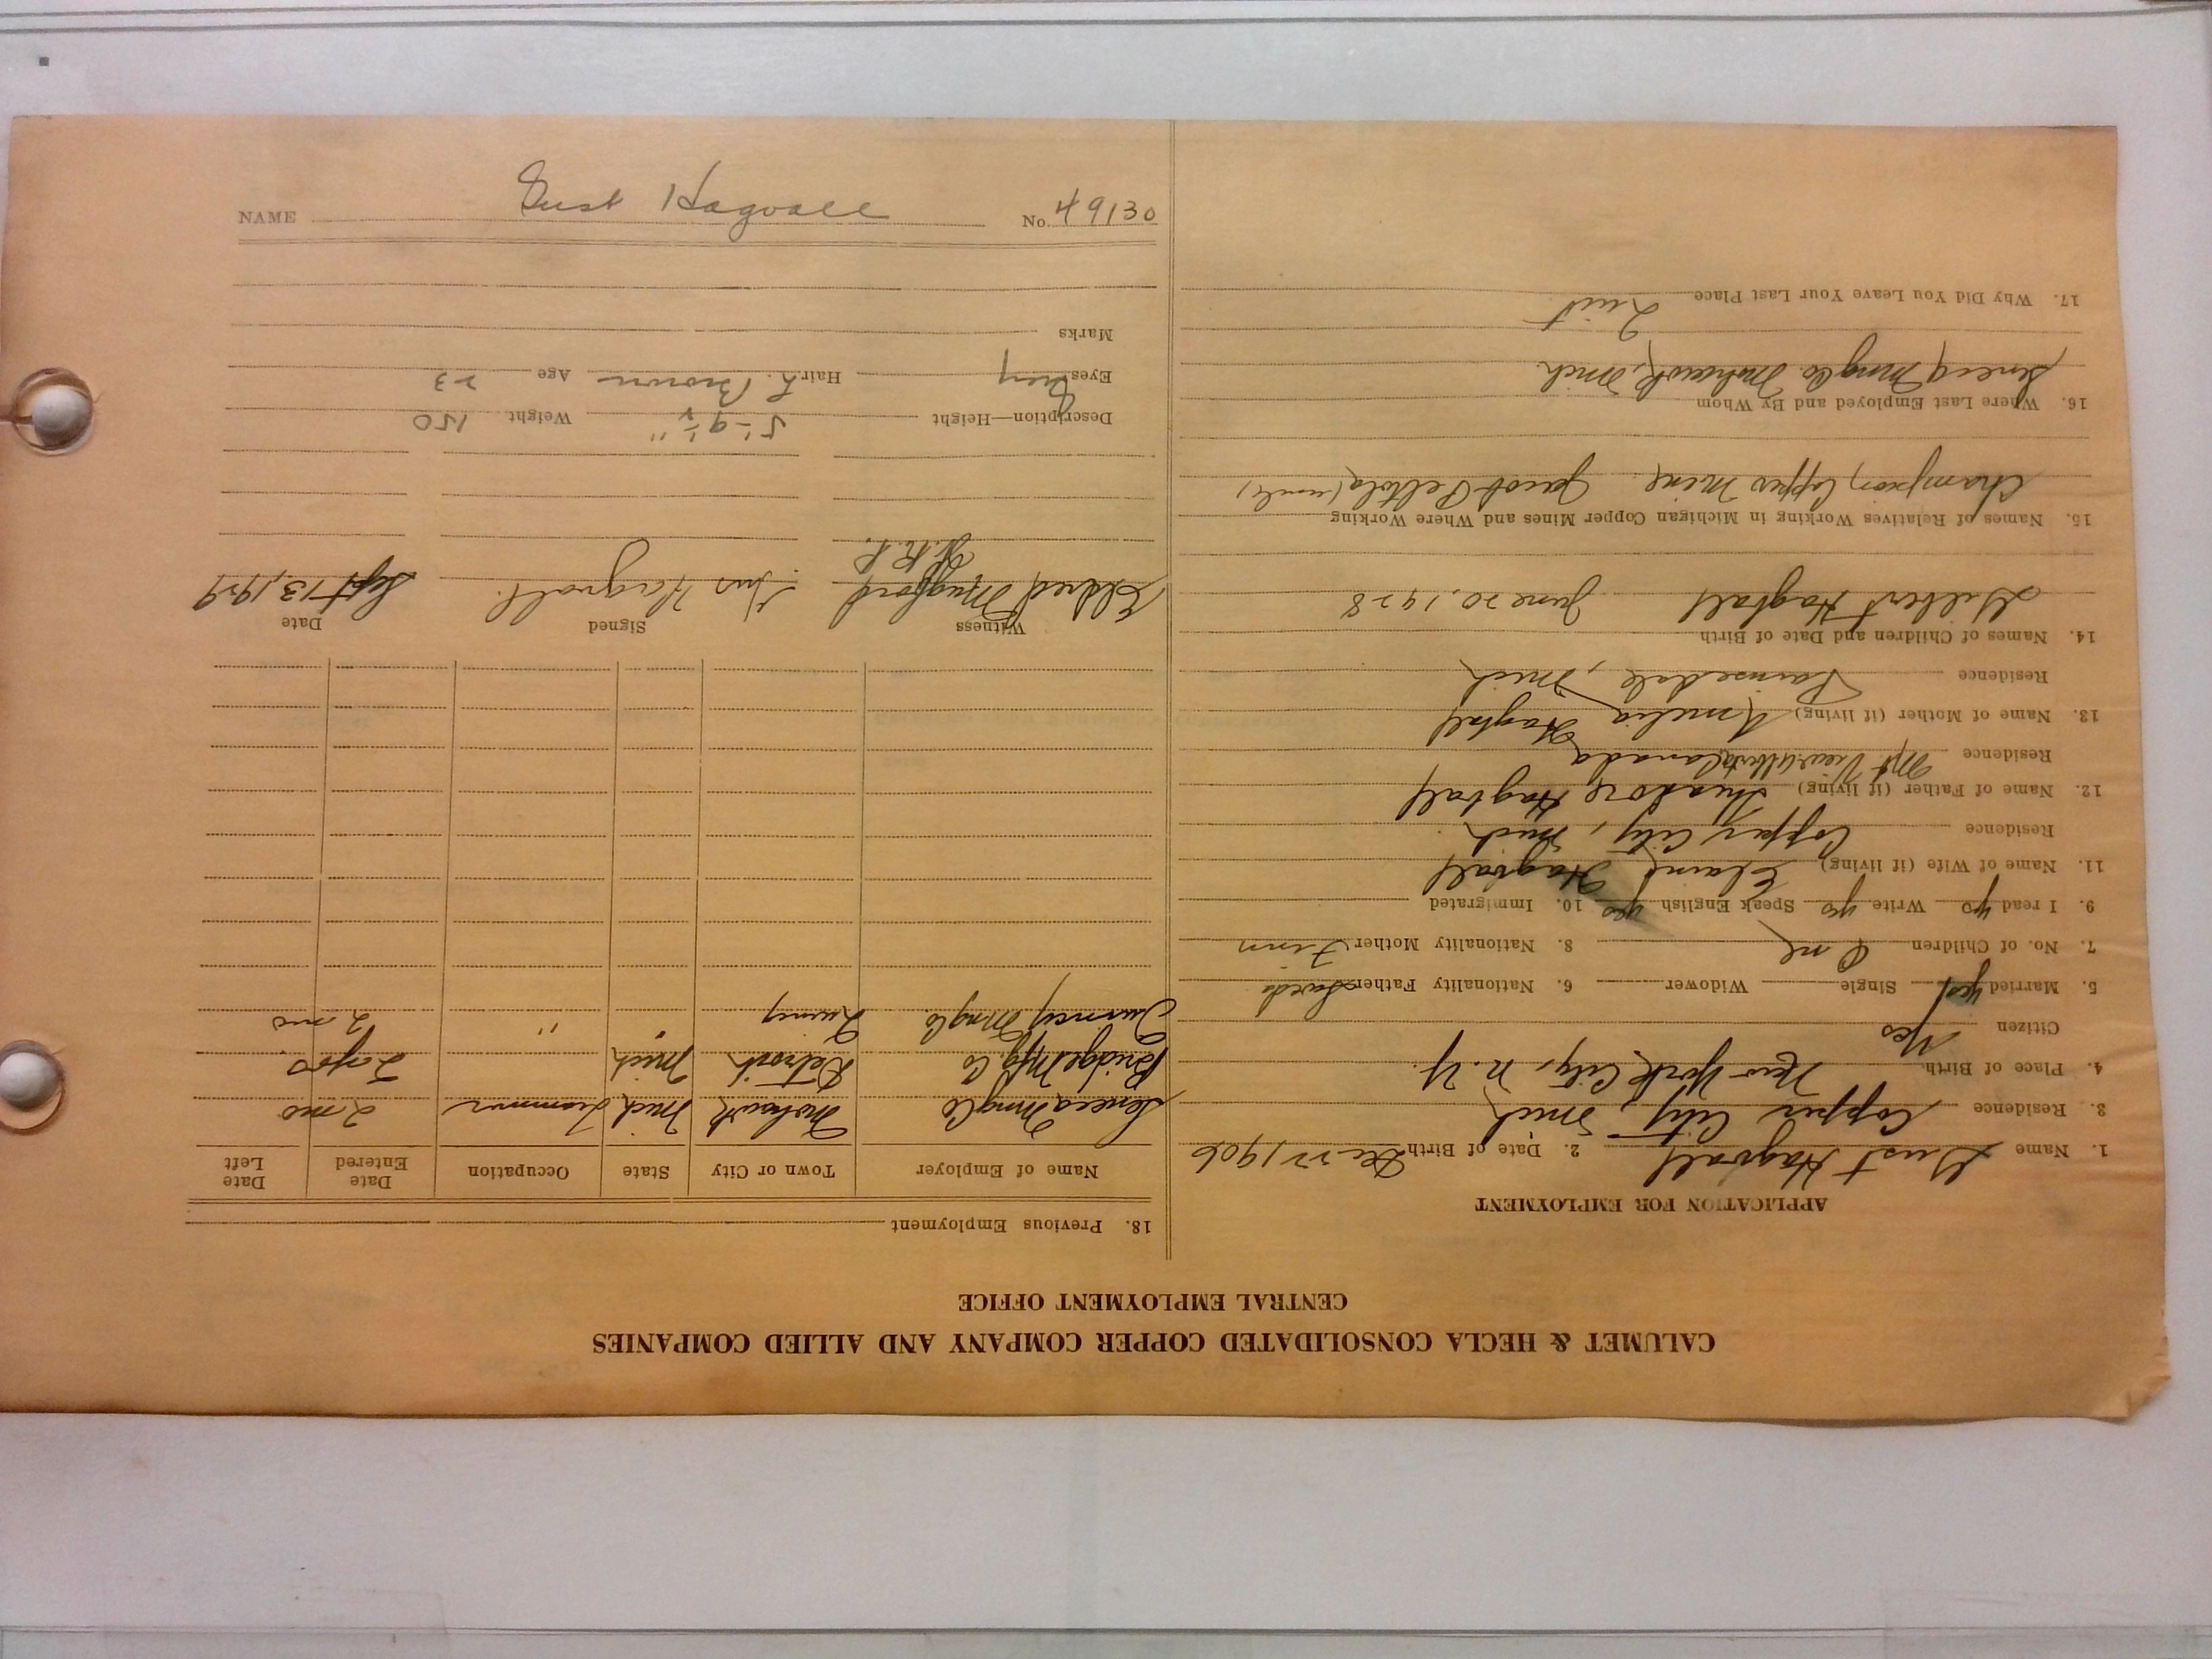 CALUMET & HECLA CONSOLIDATED COPPER COMPANY AND ALLIED COMPANIES
CENTRAL EMPLOYMENT OFFICE
APPLICATION FOR EMPLOYMENT
1. Name Gust Hagvall 2. Date of Birth Dec 22 1906
3. Residence Copper City, Mich
4. Place of Birth New York City, N.Y.
Citizen Yes
5. Married yes Single Widower 6. Nationality Father Swede
7. No. of Children One 8. Nationality Mother Finn
9. I read yes Write yes Speak English yes 10. Immigrated
11. Name of Wife (if living) Elaine Hagvall
Residence Copper City, Mich
12. Name of Father (if living) Theadore Hagvall
Residence Mt View Alberta Canada
13. Name of Mother (if living) Amelia Hagvall
Residence Painesdale, Mich
14. Names of Children and Date of Birth
Gilbert Hagvall June 20, 1928
15. Names of Relatives Working in Michigan Copper Mines and Where Working
Champion Copper Mine Jacob Peltola (uncle)
16. Where Last Employed and By Whom
Seneca Mng Co. Mohawk, Mich.
17. Why Did You Leave Your Last Place Quit
18. Previous Employment
Name of Employer Town or City State Occupation Date Entered Date Left
Seneca Mng Co Mohawk Mich Trammer 2 mo
Bridge Mfg. Co Detroit Mich " 2 yrs
Quincy Mng Co Quincy " 2 mo
Witness Signed Date
Eldred Mugford Gus Hagvall. Sept 13, 1929
H.K.P.
Description—Height 5'-9½" Weight 150
Eyes Grey Hair L Brown Age 23
Marks
NAME Gust Hagvall No. 49130